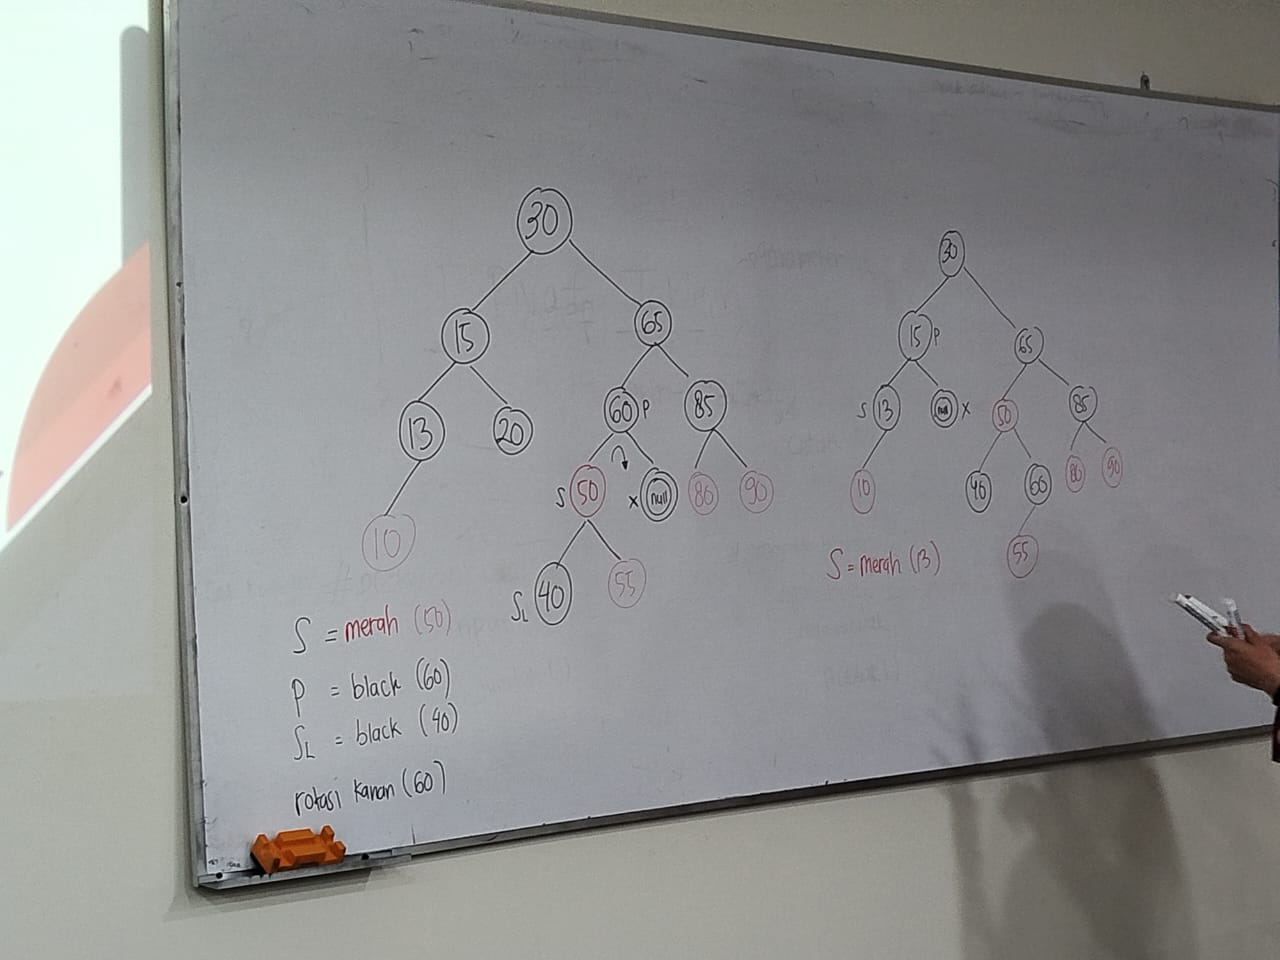 30
15
65
13
20
60 P
85
S 50
x null
80
90
10
SL 40
55
S = merah (50)
P = black (60)
SL = black (40)
rotasi kanan (60)
30
15 P
65
S 13
null x
50
85
10
40
60
80
90
55
S = merah (13)